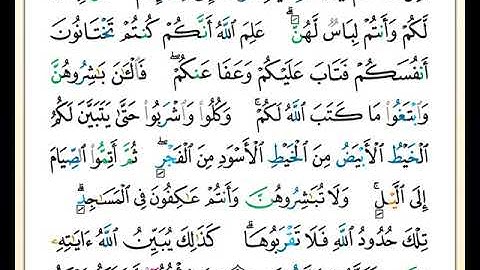 لَّكُمْ وَأَنتُمْ لِبَاسٌ لَّهُنَّ ۗ عَلِمَ ٱللَّهُ أَنَّكُمْ كُنتُمْ تَخْتَانُونَ
أَنفُسَكُمْ فَتَابَ عَلَيْكُمْ وَعَفَا عَنكُمْ ۖ فَٱلْـَٰٔنَ بَـٰشِرُوهُنَّ
وَٱبْتَغُوا۟ مَا كَتَبَ ٱللَّهُ لَكُمْ ۚ وَكُلُوا۟ وَٱشْرَبُوا۟ حَتَّىٰ يَتَبَيَّنَ لَكُمُ
ٱلْخَيْطُ ٱلْأَبْيَضُ مِنَ ٱلْخَيْطِ ٱلْأَسْوَدِ مِنَ ٱلْفَجْرِ ۖ ثُمَّ أَتِمُّوا۟ ٱلصِّيَامَ
إِلَى ٱلَّيْلِ ۚ وَلَا تُبَـٰشِرُوهُنَّ وَأَنتُمْ عَـٰكِفُونَ فِى ٱلْمَسَـٰجِدِ ۗ
تِلْكَ حُدُودُ ٱللَّهِ فَلَا تَقْرَبُوهَا ۗ كَذَٰلِكَ يُبَيِّنُ ٱللَّهُ ءَايَـٰتِهِۦ